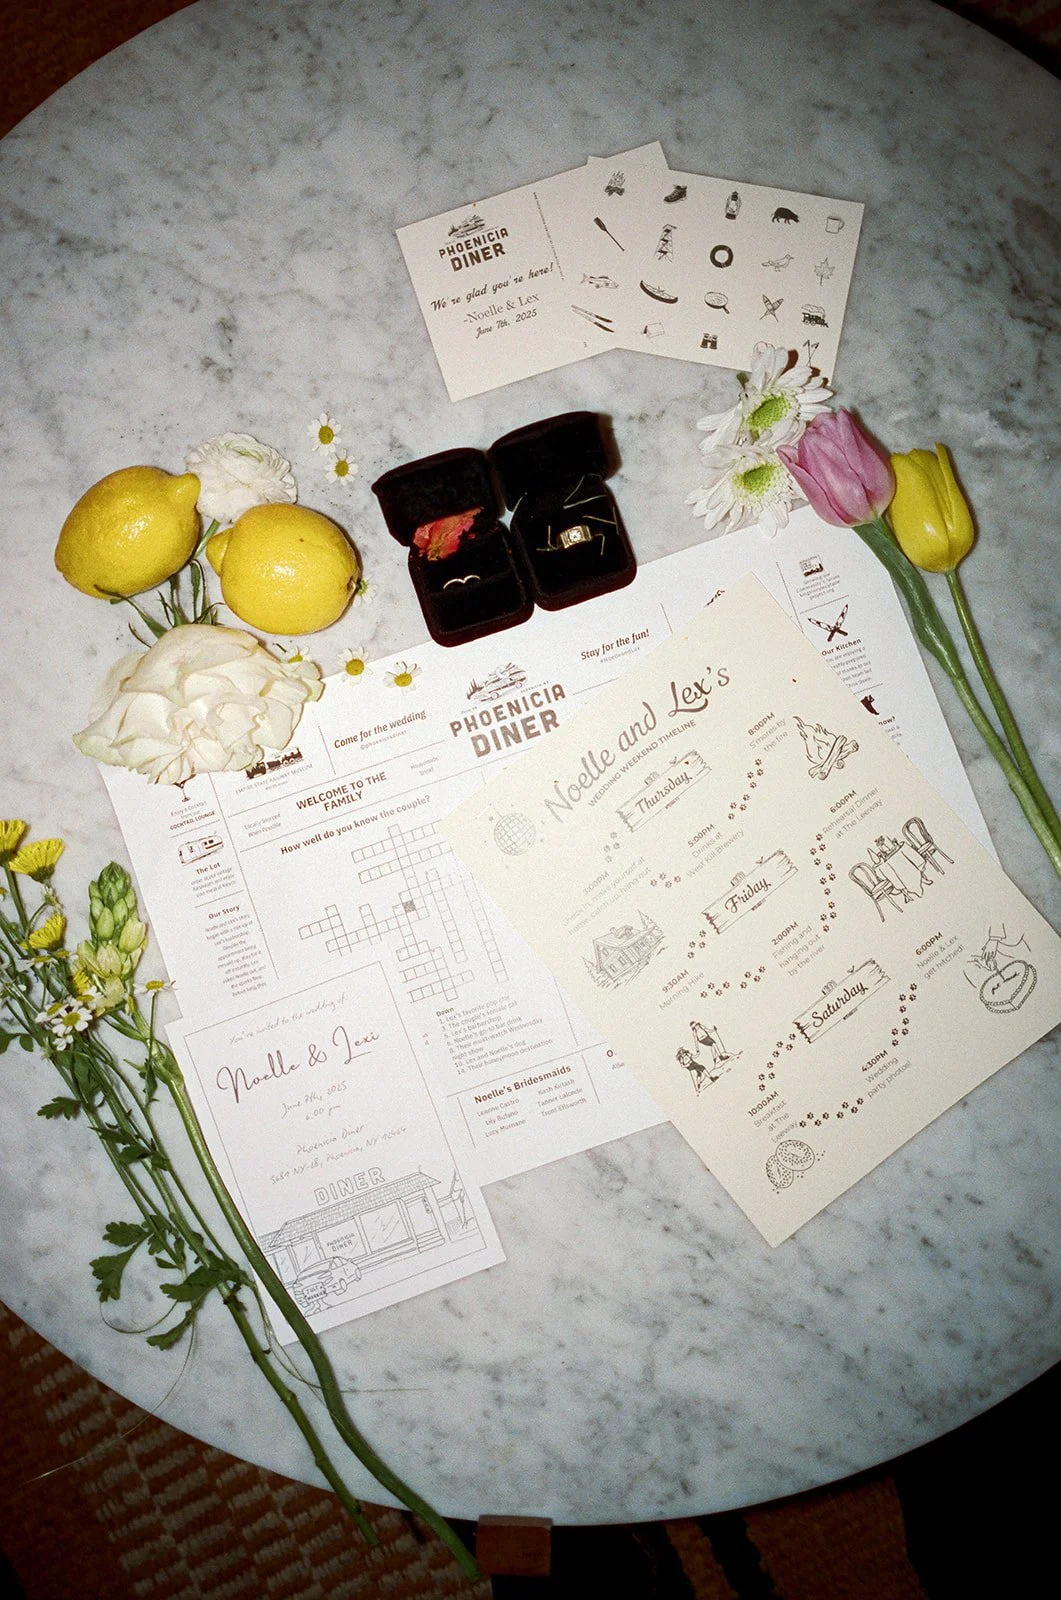 PHOENICIA
DINER
We're glad you're here!
-Noelle & Lex
June 7th, 2025
Come for the wedding
@phoeniciadiner
PHOENICIA
DINER
Stay for the fun!
#NoelleandLex
EMPIRE STATE RAILWAY MUSEUM
WELCOME TO THE
FAMILY
Locally Sourced
When Possible
Homemade
How well do you know the couple?
COCKTAIL LOUNGE
The Lot
Our Story
Our Kitchen
Down
1. Lex's favorite pop star
3. The couple's tomato cat
5. Lex's barbershop
6. Noelle's go-to bar drink
8. Their must-watch Wednesday
night show
10. Lex and Noelle's dog
14. Their honeymoon destination
Noelle's Bridesmaids
Leanne Castro
Lily Rufano
Lucy Mumane
Kash Kirtash
Tanner Lalonde
Trent Ellsworth
You're invited to the wedding of:
Noelle & Lexi
June 7th, 2025
6:00 pm
Phoenicia Diner
5681 NY-28, Phoenicia, NY 12464
DINER
PHOENICIA
DINER
JUST
MARRIED
Noelle and Lex's
WEDDING WEEKEND TIMELINE
Thursday
3:00PM
5:00PM
Drinks at
West Kill Brewery
8:00PM
S'mores by
the fire
Friday
9:30AM
Morning Hike
2:00PM
Fishing and
hanging out
by the river
6:00PM
Rehearsal Dinner
at The Leeway
Saturday
10:00AM
Breakfast
at The
Leeway
4:30PM
Wedding
party photos!
6:00PM
Noelle & Lex
get hitched!